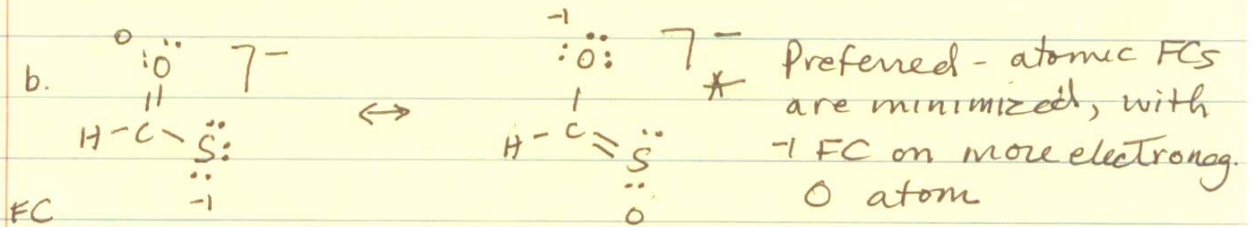 b.
0
:Ö
||
H-C-S̈:
-1
]-
↔
-1
:Ö:
|
H-C=S̈
0
]-
*
Preferred - atomic FCs
are minimized, with
-1 FC on more electroneg.
O atom
FC